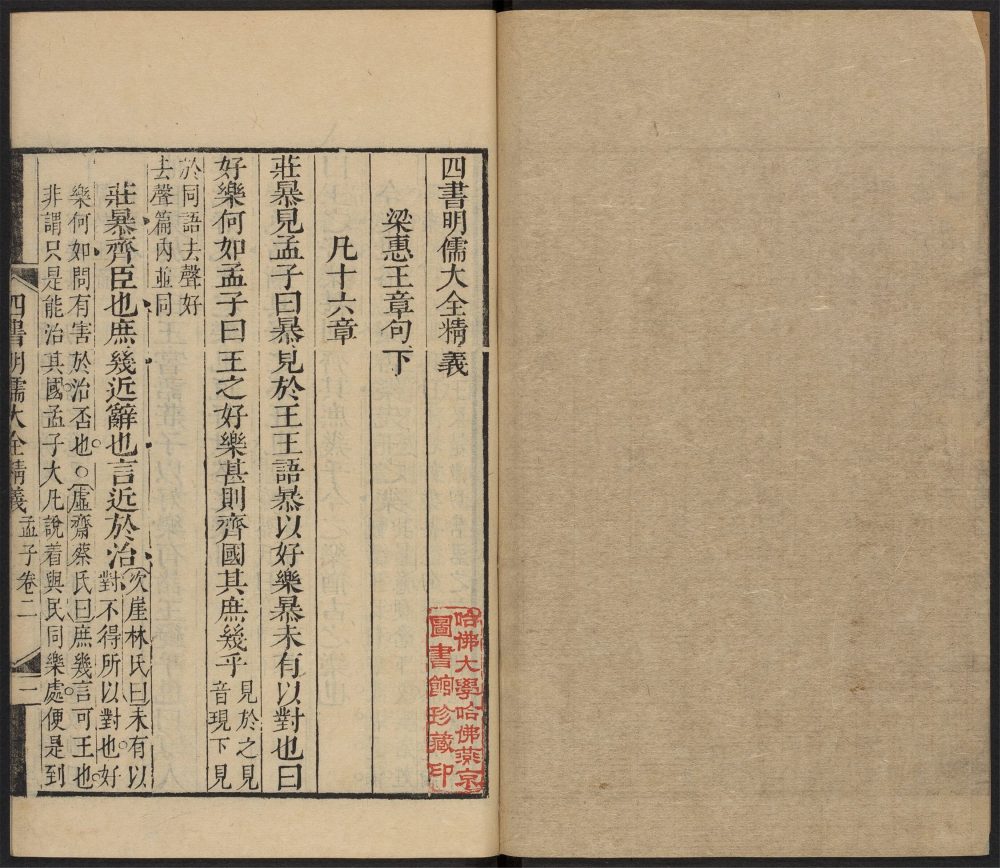 四書明儒大全精義
梁惠王章句下
凡十六章
莊暴見孟子曰暴見於王王語暴以好樂暴未有以對也曰
好樂何如孟子曰王之好樂甚則齊國其庶幾乎
見於之見
音現下見
於同語去聲好
去聲篇內並同
莊暴齊臣也庶幾近辭也言近於治
次崖林氏曰未有以
對不得所以對也好
樂何如問有害於治否也○虛齋蔡氏曰庶幾言可王也
非謂只是能治其國孟子大凡說着與民同樂處便是到
四書明儒大全精義
孟子卷二
一
哈佛大學哈佛燕京
圖書館珍藏印